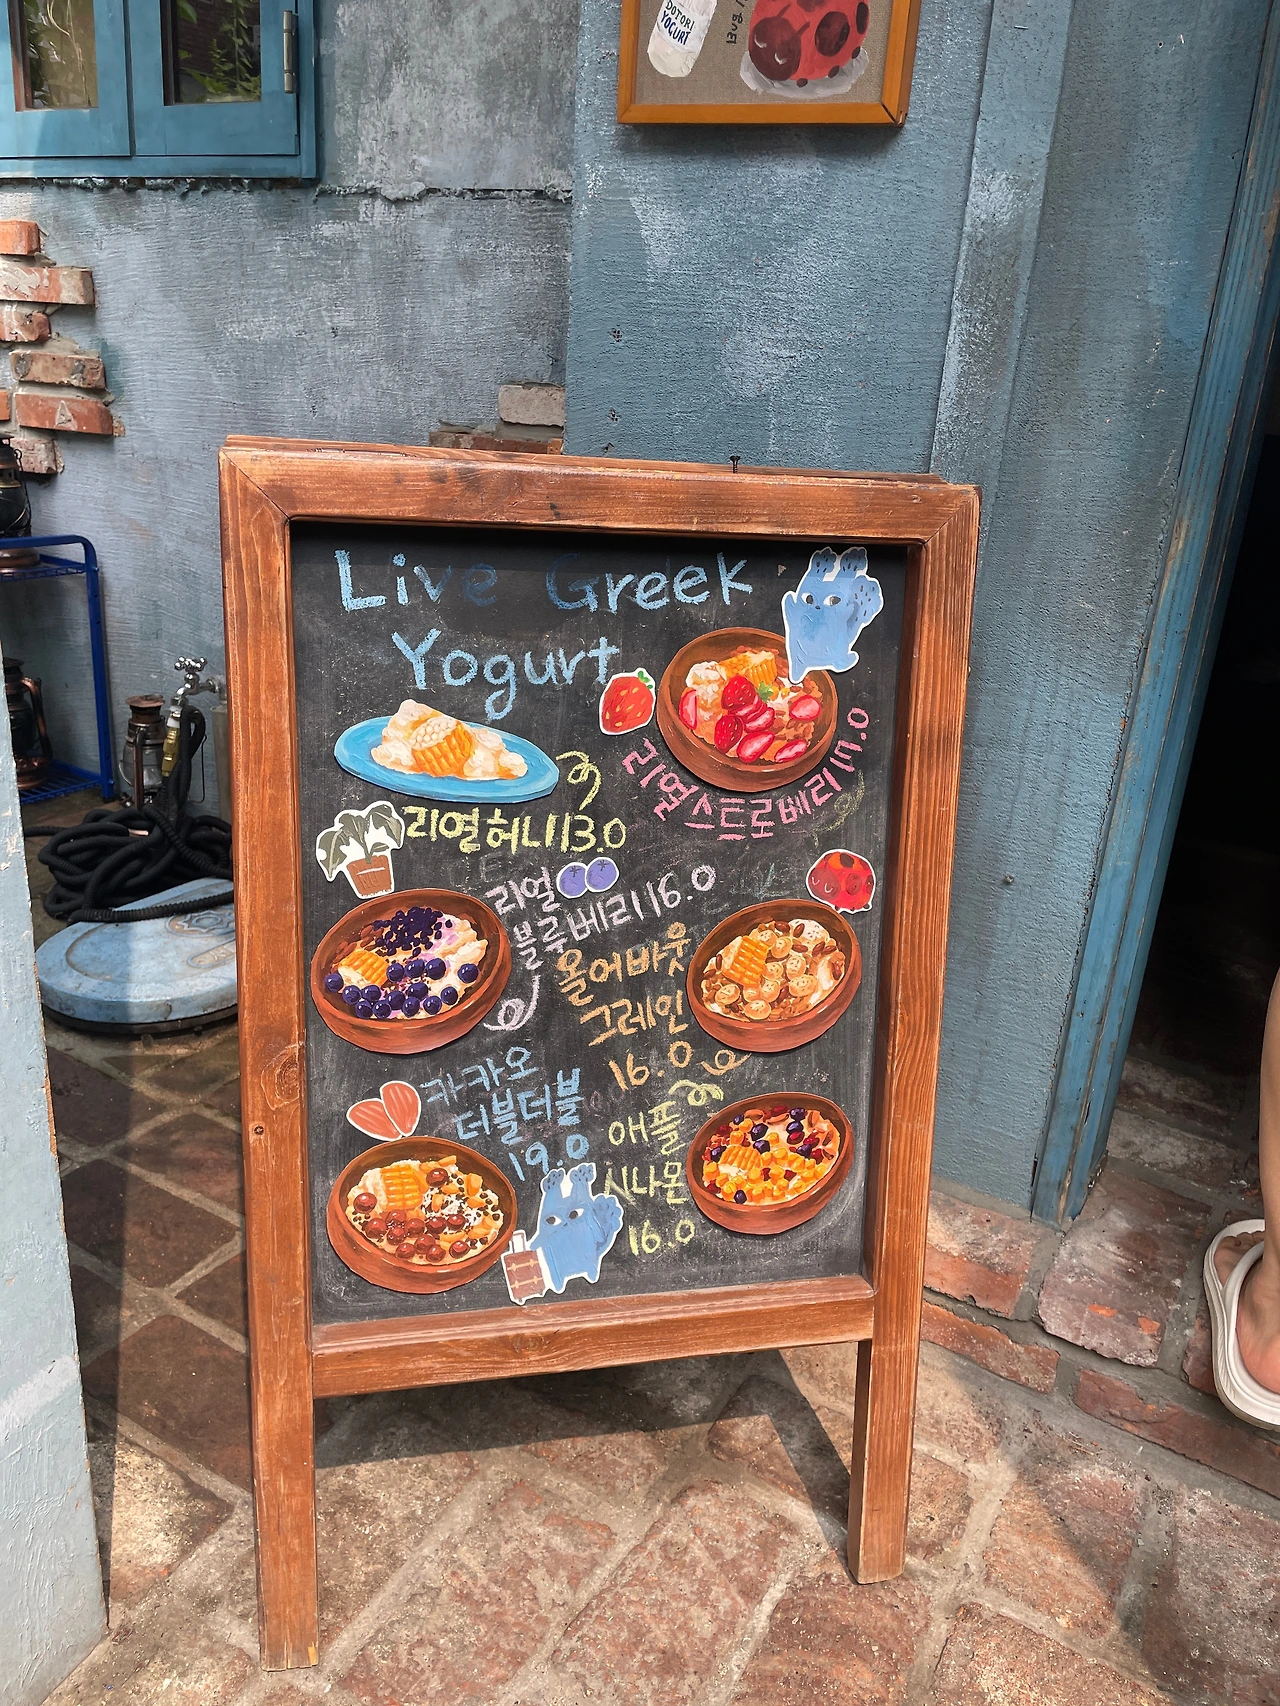 DOTORI
YOGURT
Live Greek
Yogurt
리얼스트로베리 17.0
리얼허니 13.0
리얼
블루베리 16.0
올어바웃
그레인
16.0
카카오
더블더블
19.0
애플
시나몬
16.0